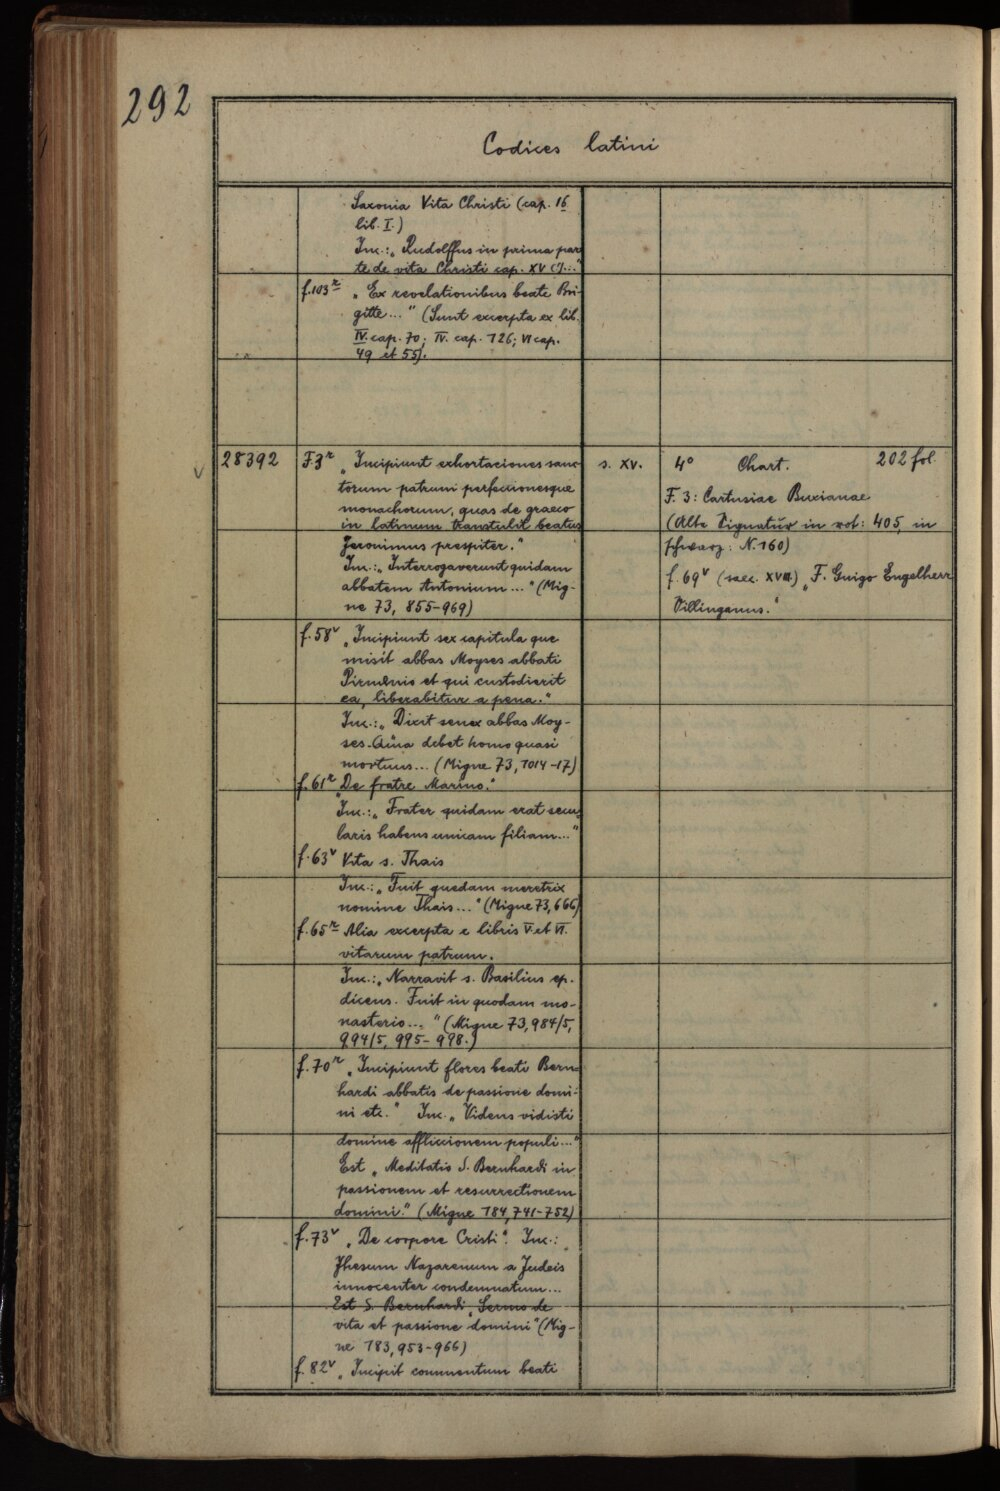 292
Codices latini
Saxonia Vita Christi (cap. 16
lib. I.)
Inc.: „Rudolffus in prima par
te de vita Christi cap. XV (!)..."
f. 103r „Ex revelationibus beate Bri-
gitte..." (Sunt excerpta ex lib.
IV. cap. 70; IV. cap. 126; VI cap.
49 et 55).
28392 F. 3r „Incipiunt exhortaciones sanc- s. XV. 4° Chart. 202 fol.
torum patrum perfeccionesque F. 3: Cartusiae Buxianae
monachorum, quas de graeco (Alte Signatur in rot: 405, in
in latinum transtulit beatus
Jeronimus prespiter." schwarz: N. 160)
Inc.: „Interrogaverunt quidam f. 69v (saec. XVIII) „F. Guigo Engelherr
abbatem Antonium..." (Mig-
ne 73, 855-969) Villinganus."
f. 58v „Incipiunt sex capitula que
misit abbas Moyses abbati
Pirmenio et qui custodierit
ea, liberabitur a pena."
Inc.: „Dixit senex abbas Moy-
ses. Quia debet homo quasi
mortuus... (Migne 73, 1014-17)
f. 61r „De fratre Marino."
Inc.: „Frater quidam erat secu-
laris habens unicam filiam..."
f. 63v Vita s. Thais
Inc.: „Fuit quedam meretrix
nomine Thais..." (Migne 73, 666)
f. 65r Alia excerpta e libris V. et VI.
vitarum patrum.
Inc.: „Narravit s. Basilius ep.
dicens. Fuit in quodam mo-
nasterio..." (Migne 73, 984/5,
994/5, 995-998.)
f. 70r „Incipiunt flores beati Bern-
hardi abbatis de passione domi-
ni etc." Inc. „Videns vidisti
domine affliccionem populi..."
Est „Meditatio S. Bernhardi in
passionem et resurrectionem
domini." (Migne 184, 741-752)
f. 73v „De corpore Cristi". Inc.:
Jhesum Nazarenum a Judeis
innocenter condemnatum...
Est S. Bernhardi „Sermo de
vita et passione domini" (Mig-
ne 183, 953-966)
f. 82v „Incipit commentum beati